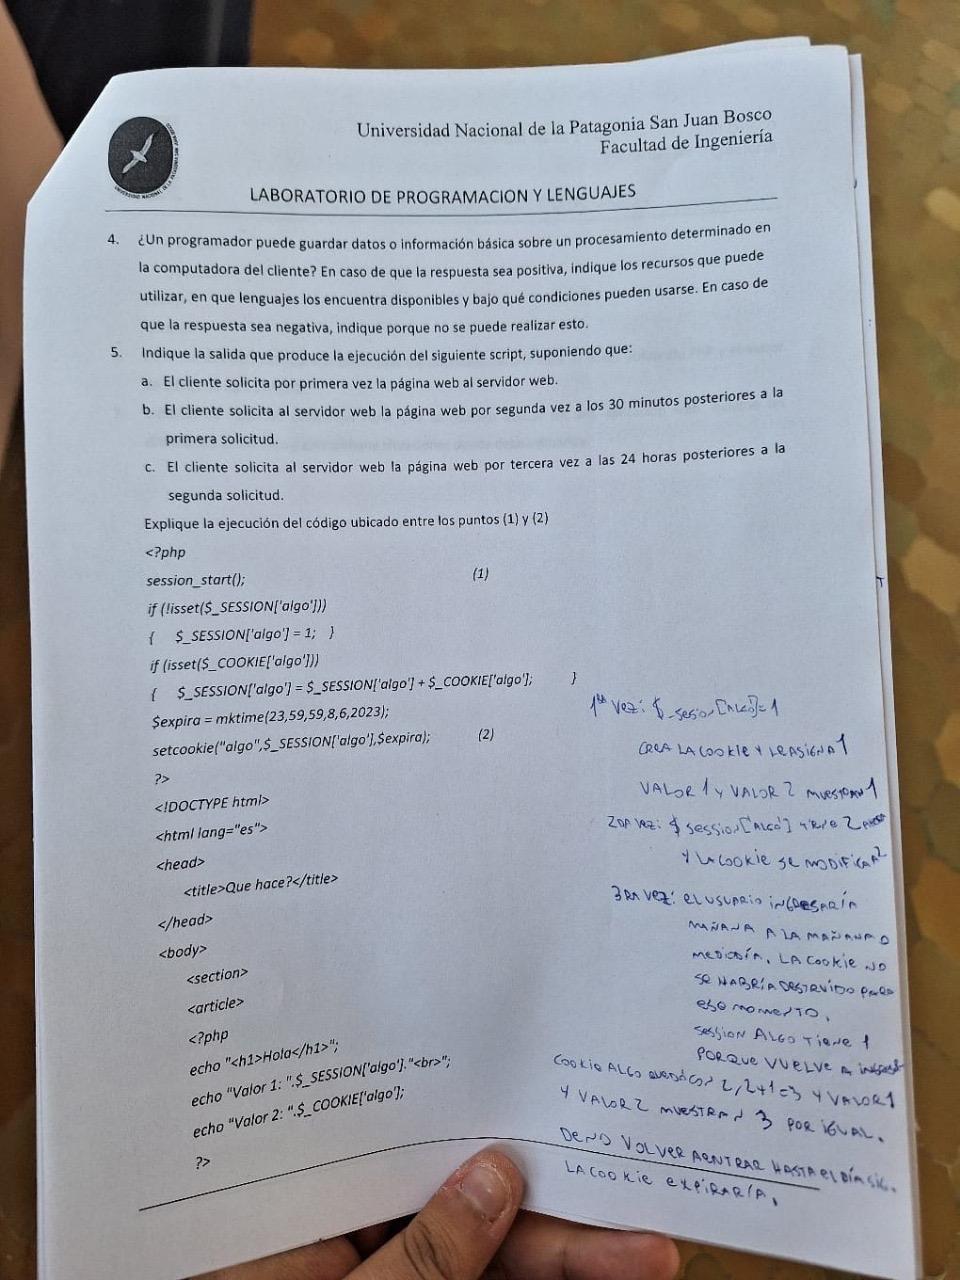 Universidad Nacional de la Patagonia San Juan Bosco
Facultad de Ingeniería
LABORATORIO DE PROGRAMACION Y LENGUAJES
4. ¿Un programador puede guardar datos o información básica sobre un procesamiento determinado en
la computadora del cliente? En caso de que la respuesta sea positiva, indique los recursos que puede
utilizar, en que lenguajes los encuentra disponibles y bajo qué condiciones pueden usarse. En caso de
que la respuesta sea negativa, indique porque no se puede realizar esto.
5. Indique la salida que produce la ejecución del siguiente script, suponiendo que:
a. El cliente solicita por primera vez la página web al servidor web.
b. El cliente solicita al servidor web la página web por segunda vez a los 30 minutos posteriores a la
primera solicitud.
c. El cliente solicita al servidor web la página web por tercera vez a las 24 horas posteriores a la
segunda solicitud.
Explique la ejecución del código ubicado entre los puntos (1) y (2)
<?php
session_start(); (1)
if (!isset($_SESSION['algo']))
{ $_SESSION['algo'] = 1; }
if (isset($_COOKIE['algo']))
{ $_SESSION['algo'] = $_SESSION['algo'] + $_COOKIE['algo']; }
$expira = mktime(23,59,59,8,6,2023);
setcookie("algo",$_SESSION['algo'],$expira); (2)
?>
<!DOCTYPE html>
<html lang="es">
<head>
<title>Que hace?</title>
</head>
<body>
<section>
<article>
<?php
echo "<h1>Hola</h1>";
echo "Valor 1: ".$_SESSION['algo']."<br>";
echo "Valor 2: ".$_COOKIE['algo'];
?>
1ra VEZ: $_SESION[ALGO]=1
CREA LA COOKIE Y LE ASIGNA 1
VALOR 1 Y VALOR 2 MUESTRAN 1
2DA VEZ: $ SESSION['ALGO'] TIENE 2
Y LA COOKIE SE MODIFICA A 2
3RA VEZ: EL USUARIO INGRESARÍA
MAÑANA A LA MAÑANA O
MEDIODÍA. LA COOKIE NO
SE HABRÍA DESTRUIDO PARA
ESE MOMENTO.
SESSION ALGO TIENE 1
PORQUE VUELVE A
COOKIE ALGO QUEDÓ CON 2, 2+1=3 Y VALOR 1
Y VALOR 2 MUESTRAN 3 POR IGUAL.
DE NO VOLVER A ENTRAR HASTA EL DÍA SIG.
LA COOKIE EXPIRARÍA.